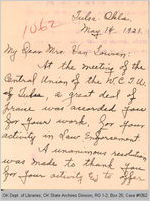 Tulsa. Okla.
1062
May 14. 1921.
My Dear Mrs. Van Leuven:
At the meeting of the
Central Union of the W.C.T.U.
of Tulsa, a great deal of
praise was accorded you
for your work, for your
activity in Law Enforcement.
A unanimous resolution
was made to thank you
for your activity to
OK Dept. of Libraries, OK State Archives Division, RG 1-2, Box 25, Case #1062